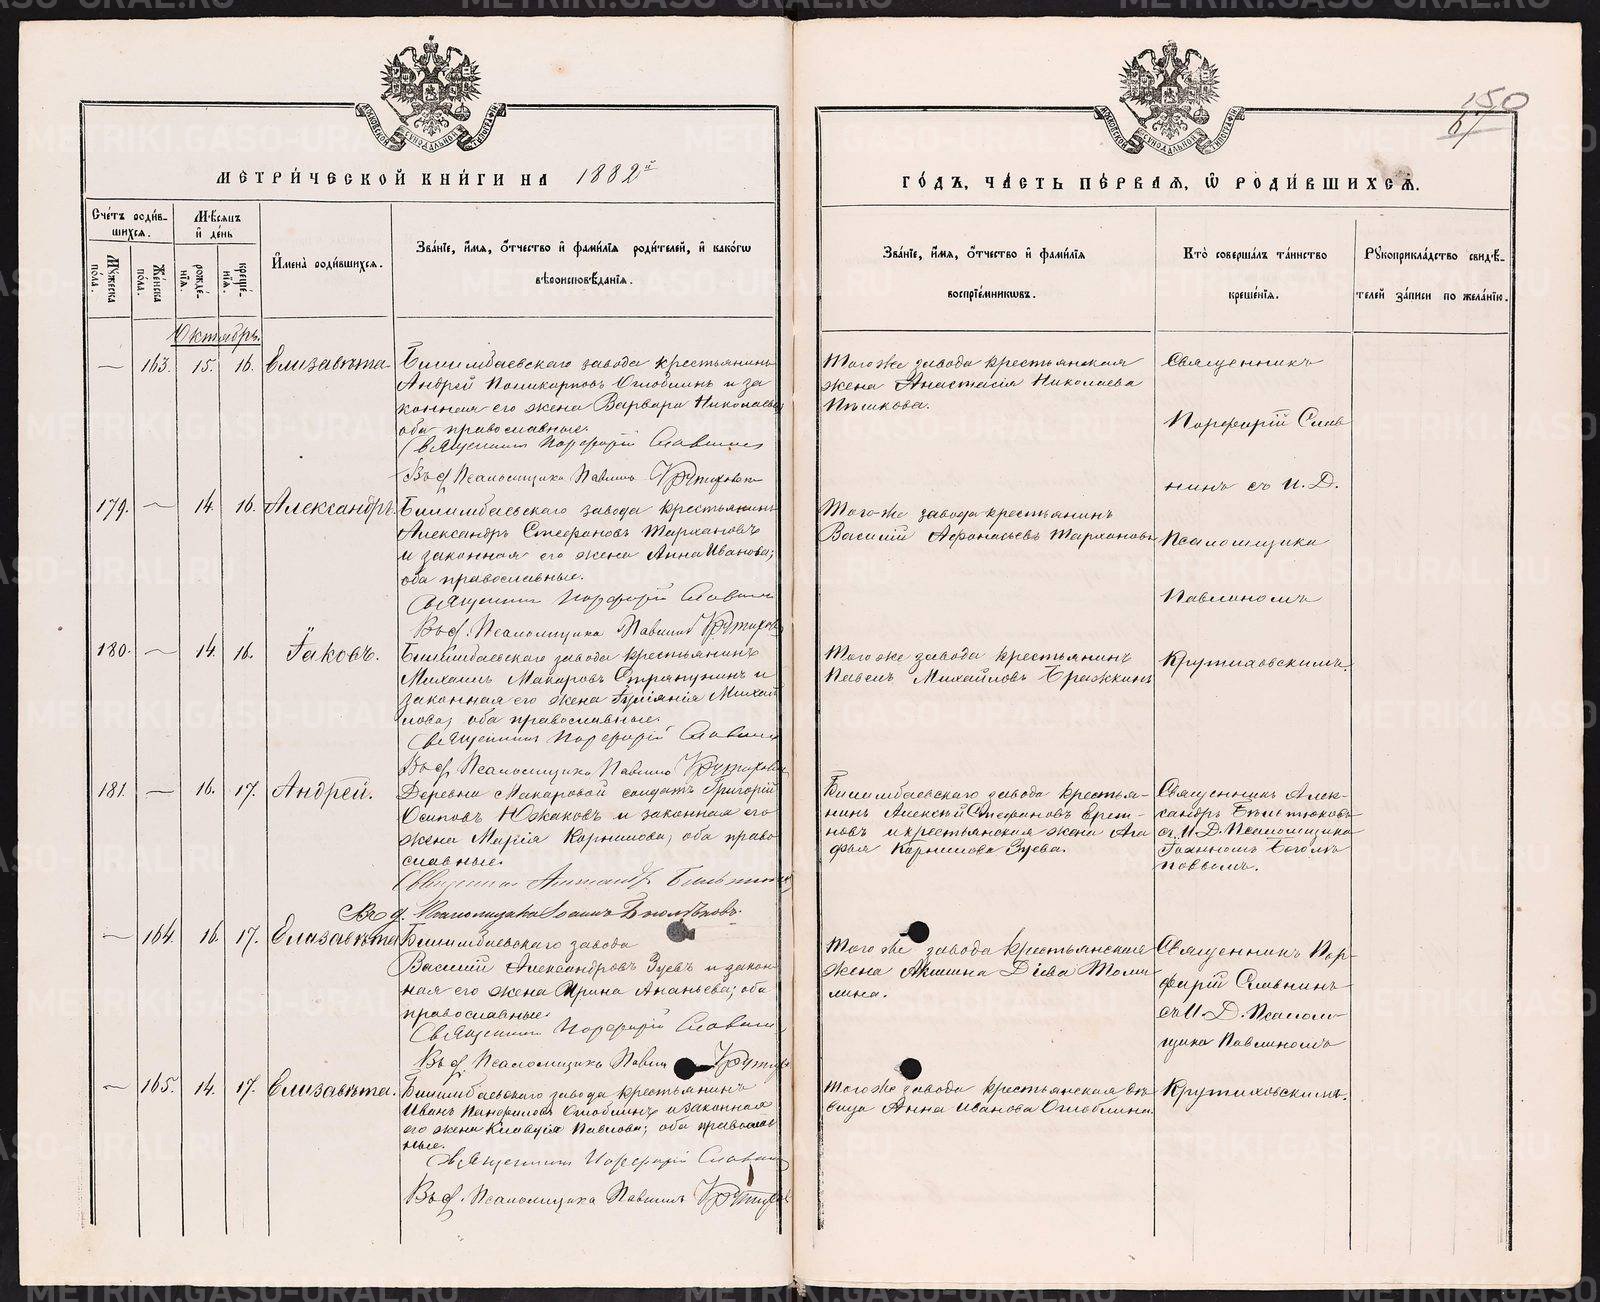 150
67
МЕТРИ́ЧЕСКОЙ КНИ́ГИ НА 1882й
ГО́ДЪ, ЧА́СТЬ ПЕ́РВАЯ, Ѡ РОДИ́ВШИХСЯ.
Сче́тъ роди́в-
шихся.
Мѣсяцъ
и де́нь
Мꙋжеска
по́ла.
Же́нска
по́ла.
рожде́-
нїя.
креще́-
нїя.
И҆мена̀ роди́вшихся.
Зва́нїе, и҆́мя, ѻ҆́тчество и҆ фами́лїя роди́телей, и҆ како́гѡ
вѣроисповѣ́данїя.
Зва́нїе, и҆́мя, ѻ҆́тчество и҆ фами́лїя
воспрїе́мникѡвъ.
Кто̀ соверша́лъ та́инство
креще́нїя.
Рꙋкоприкла́дство свидѣ́-
телей за́писи по жела́нїю.
Октябрь.
— 163. 15. 16. Елизавета.
Билимбаевскаго завода крестьянинъ
Андрей Поликарповъ Оглоблинъ и за
конная его жена Варвара Николаева
оба православные.
Священникъ Порфирій Славнинъ
Въ д. Псаломщика Павлинъ Крутиховскій
Того же завода крестьянская
жена Анастасія Николаева
Пѣшкова.
Священникъ
Порфирій Слав
нинъ съ И. Д.
Псаломщика
Павлиномъ
Крутиховскимъ.
179. — 14. 16. Александръ.
Билимбаевскаго завода крестьянинъ
Александръ Стефановъ Тархановъ
и законная его жена Анна Иванова;
оба православные.
Священникъ Порфирій Славнинъ
Въ д. Псаломщика Павлинъ Крутихов
Того-же завода крестьянинъ
Василій Афонасьевъ Тархановъ
180. — 14. 16. Іаковъ.
Билимбаевскаго завода крестьянинъ
Михаилъ Макаровъ Стряпунинъ и
законная его жена Іуліанія Михай
лова, оба православные.
Священникъ Порфирій Славнинъ
Въ д. Псаломщика Павлинъ Крутихов
Того же завода крестьянинъ
Павелъ Михайловъ Бражкинъ
181. — 16. 17. Андрей.
Деревни Макаровой солдатъ Григорій
Осиповъ Южаковъ и законная его
жена Марія Корнилова, оба право
славные.
Священникъ Александръ
Въ д. Псаломщика Іоаннъ
Билимбаевскаго завода крестья-
нинъ Алексѣй Стефановъ
новъ и крестьянская жена Ага
фья Корнилова Зуева.
Священникъ Алек-
сандръ
съ И. Д. Псаломщика
Іоанномъ Боголѣ
повымъ.
— 164. 16. 17. Елизавета
Билимбаевскаго завода
Василій Александровъ Зуевъ и закон-
ная его жена Ирина Ананьева; оба
православные.
Священникъ Порфирій Славнинъ
Въ д. Псаломщика Павлин Крутих
Того же завода крестьянская
жена Акилина Діева Томи
лина.
Священникъ Пор-
фирій Славнинъ
съ И. Д. Псалом
щика Павлиномъ
Крутиховскимъ.
— 165. 14. 17. Елизавета.
Билимбаевскаго завода крестьянинъ
Иванъ Панфиловъ Оглоблинъ и законная
его жена Клавдія Павлова; оба православ
ные.
Священникъ Порфирій Славнинъ
Въ д. Псаломщика Павлинъ Крутихов
Того же завода крестьянская вдо
вица Анна Иванова Оглоблина.
METRIKI.GASO-URAL.RU